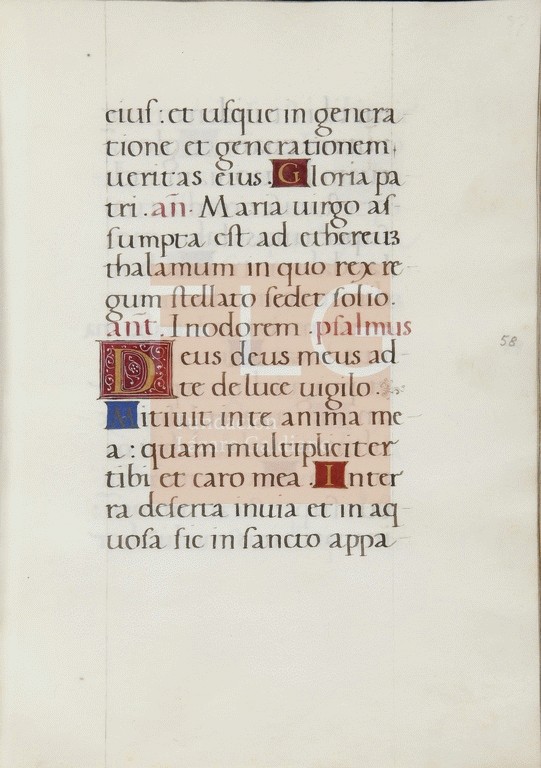 eius: et usque in genera
tione et generationem
ueritas eius. Gloria pa
tri. añ. Maria uirgo as
sumpta est ad ethereuʒ
thalamum in quo rex re
gum stellato sedet solio.
añt. Inodorem. psalmus
Deus deus meus ad
te de luce uigilo.
Sitiuit in te anima me
a: quam multipliciter
tibi et caro mea. Inter
ra deserta inuia et in aq
uosa sic in sancto appa
58